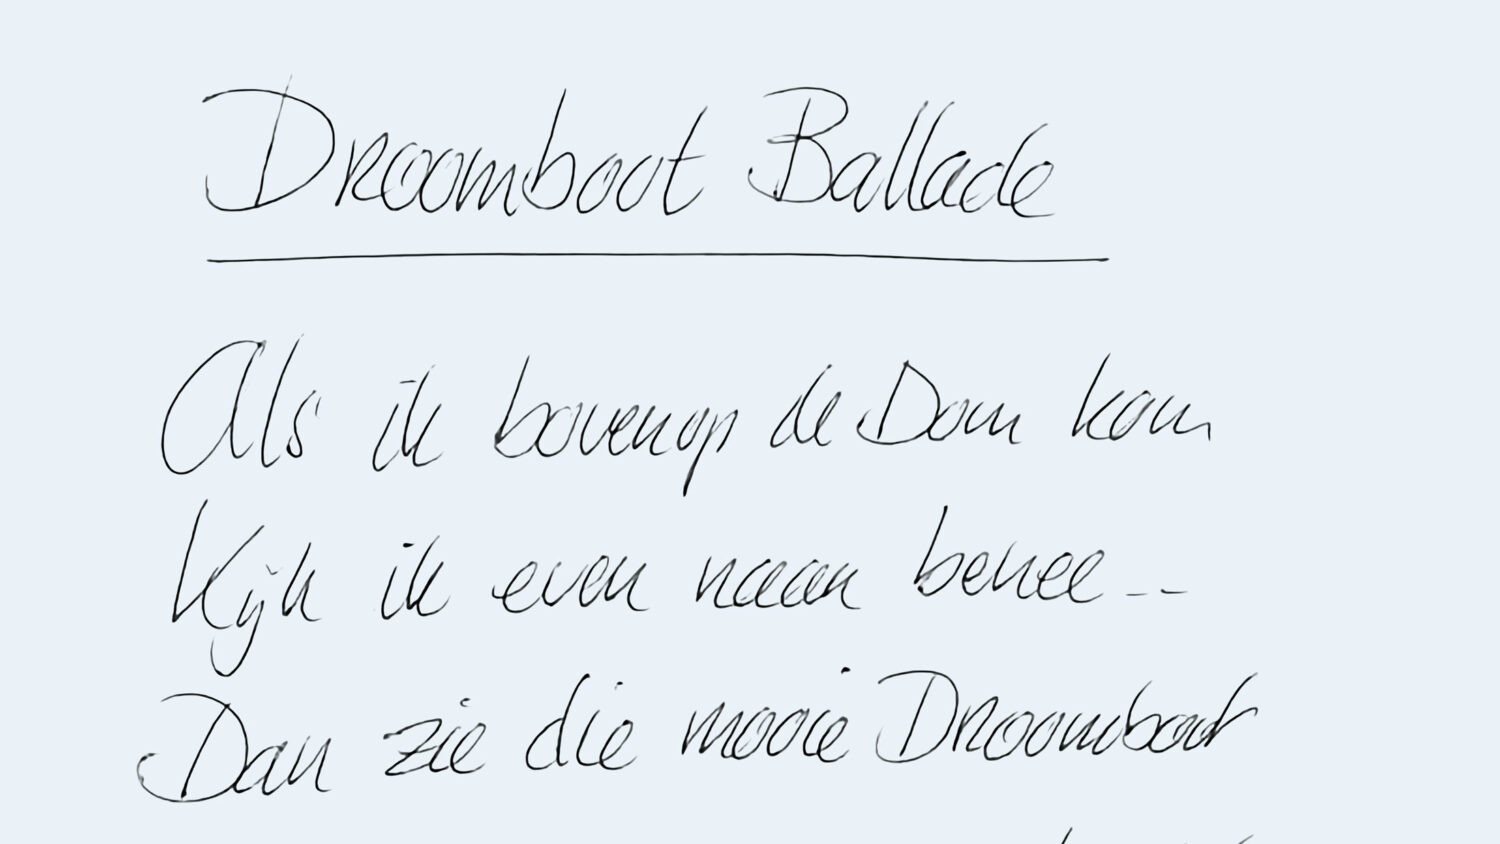 Droomboot Ballade
Als ik bovenop de Dom kom
Kijk ik even naar benee --
Dan zie die mooie Droomboot